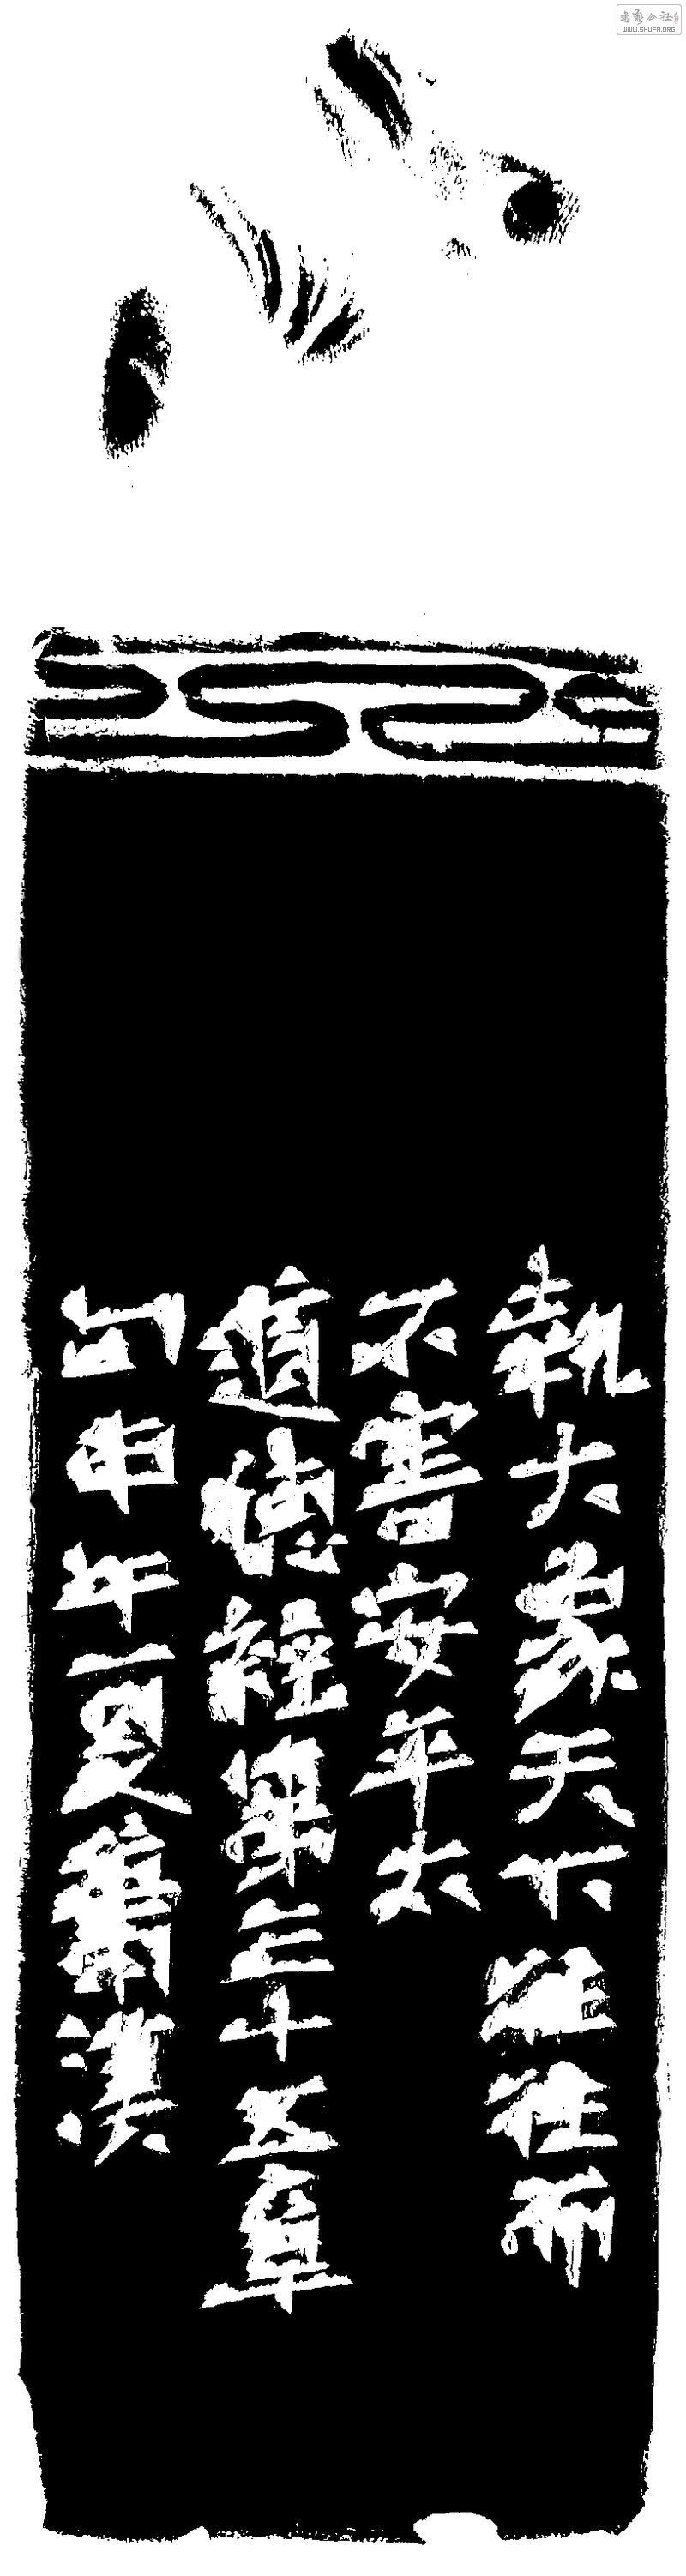 執大象天下往往而
不害安平太
道德經第三十五章
丙申年夏漢
WWW.SHUFA.ORG